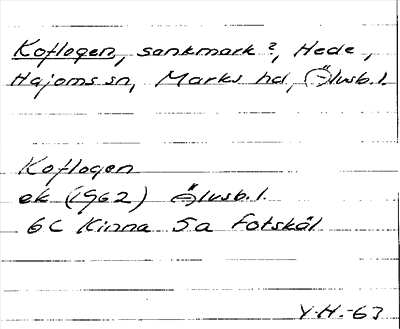 Koflogen, sankmark?, Hede,
Hajoms sn, Marks hd, Älvsb. l.
Koflogen
ek (1962) Älvsb. l.
6C Kinna 5a Fotskäl
Y.H.-63